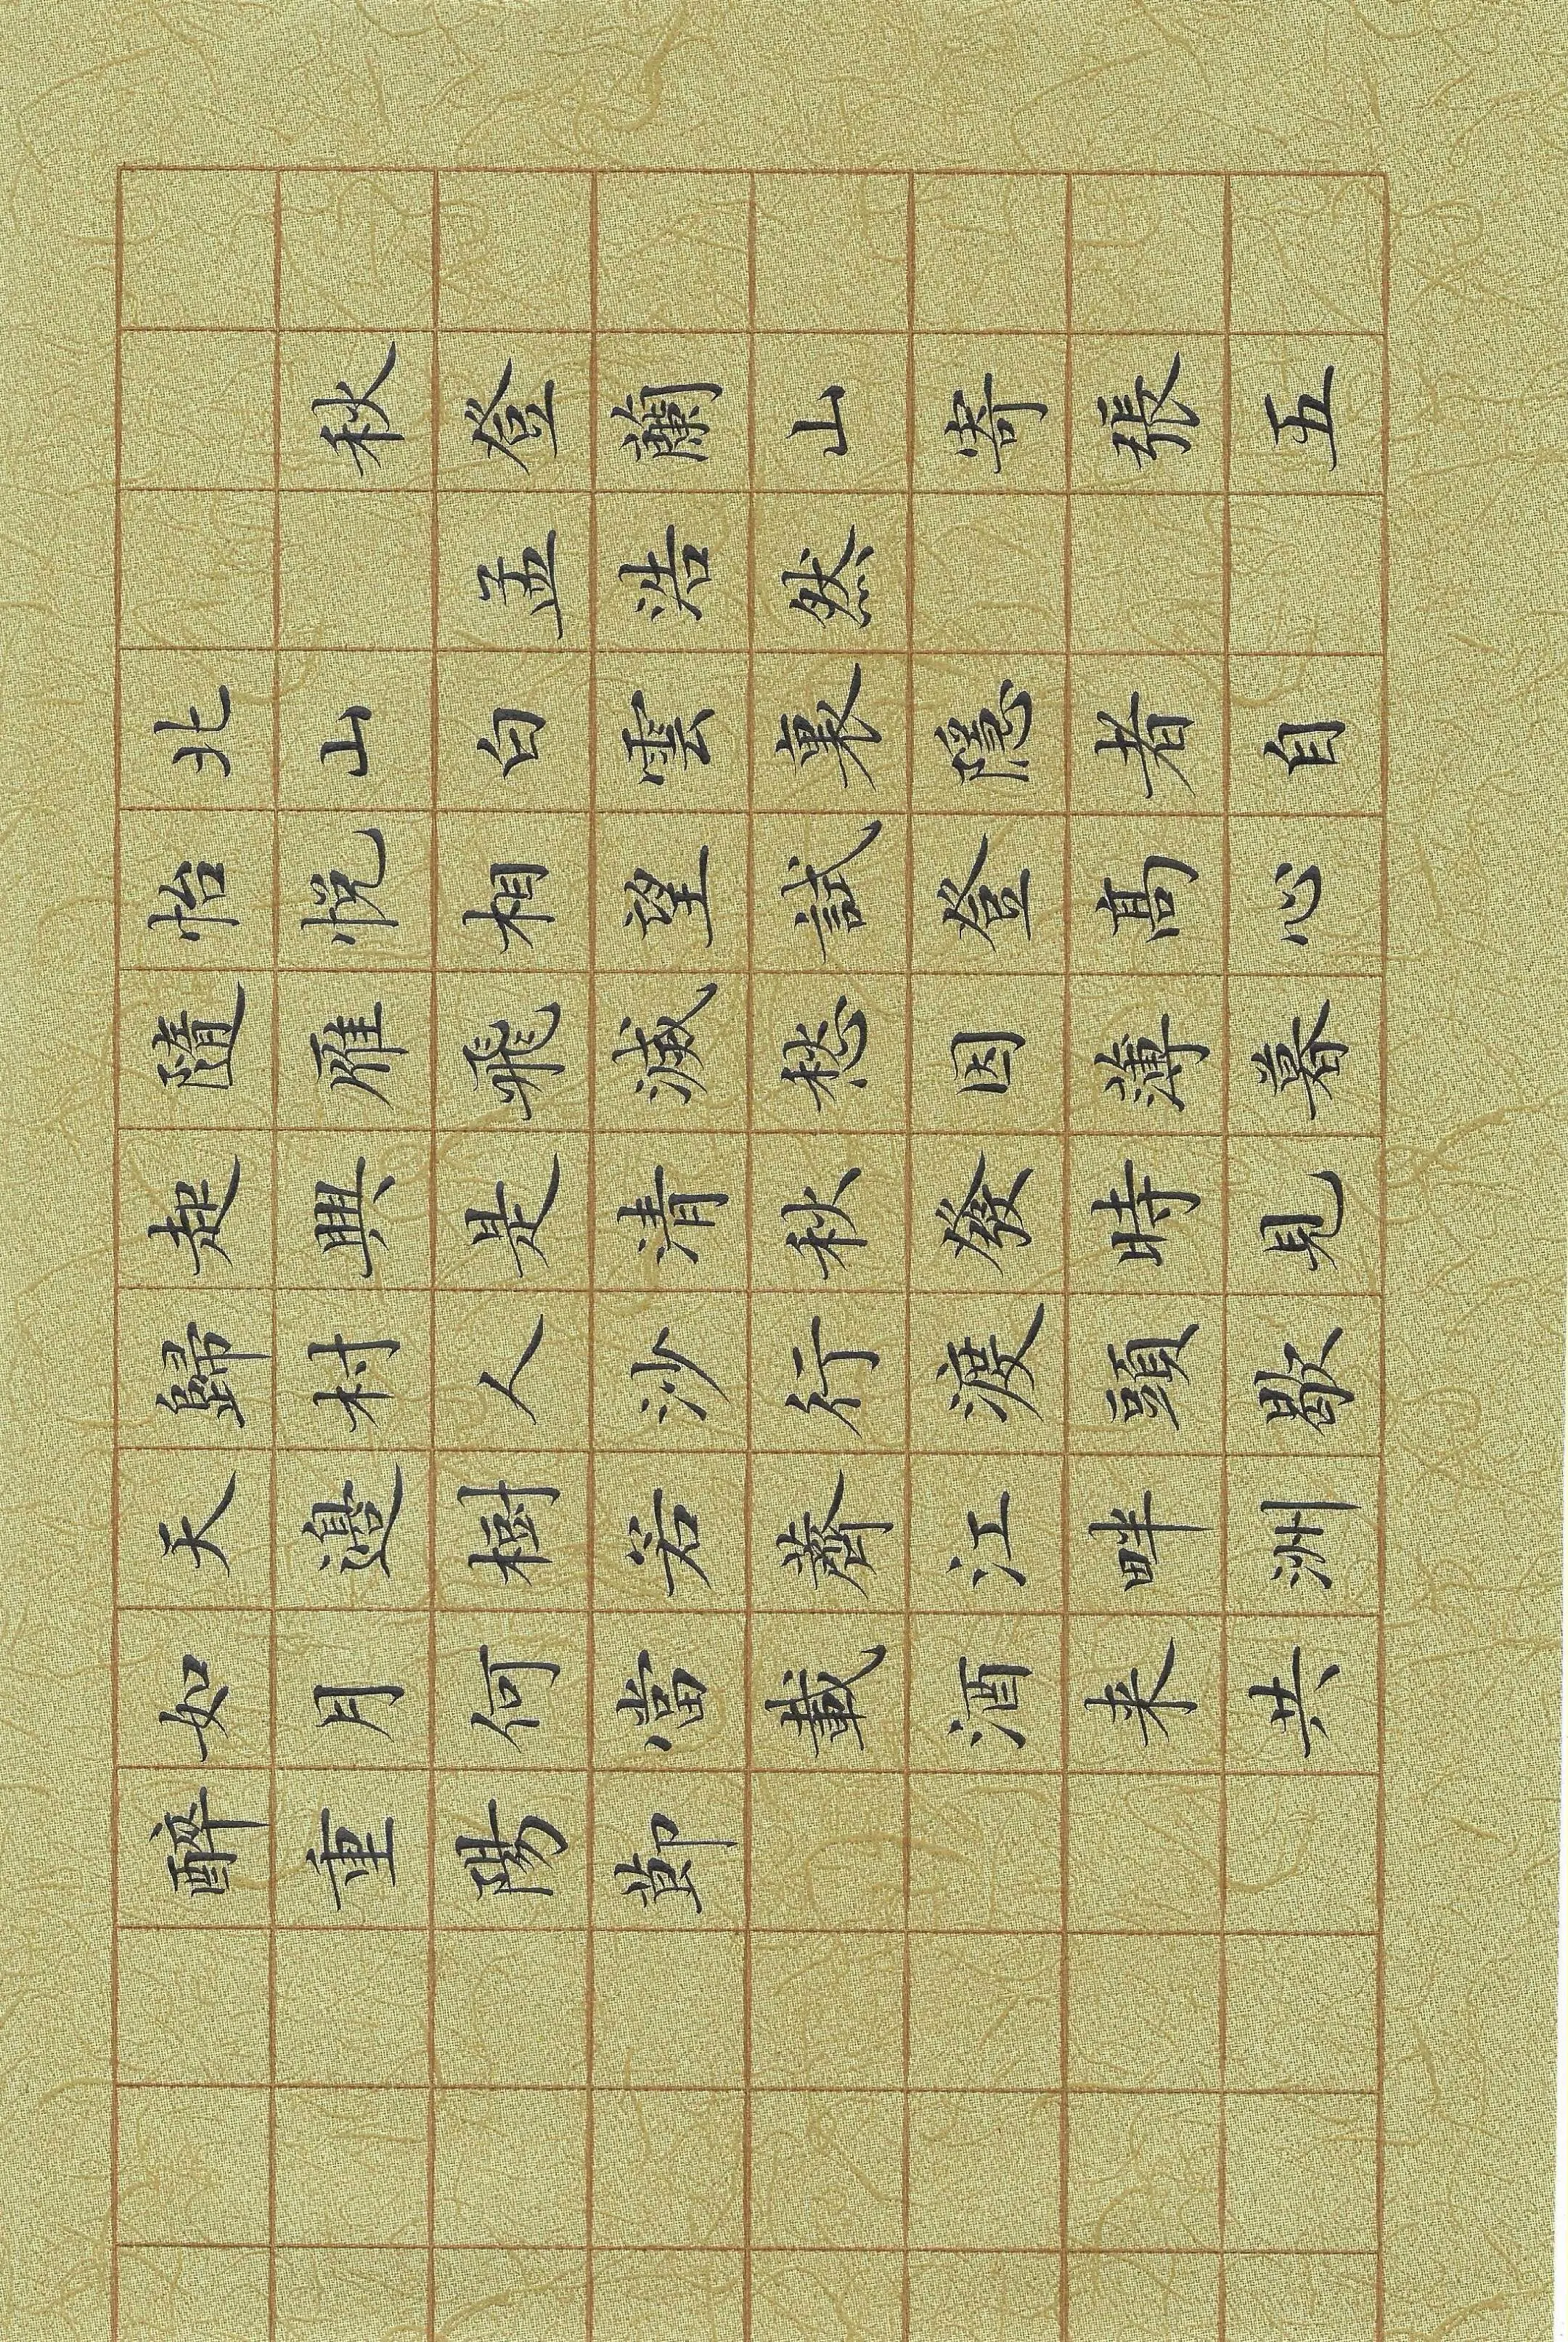 秋登蘭山寄張五
孟浩然
北山白雲裏隱者自
怡悅相望試登高心
隨雁飛滅愁因薄暮
起興是清秋發時見
歸村人沙行渡頭歇
天邊樹若薺江畔洲
如月何當載酒来共
醉重陽節